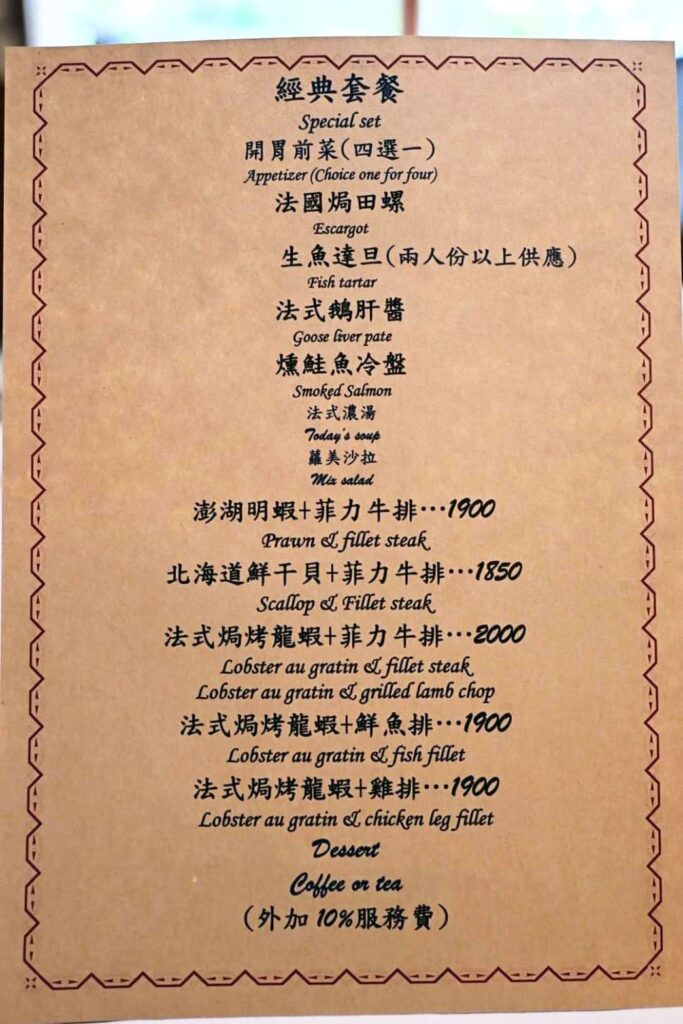 經典套餐
Special set
開胃前菜(四選一)
Appetizer (Choice one for four)
法國焗田螺
Escargot
生魚達旦(兩人份以上供應)
Fish tartar
法式鵝肝醬
Goose liver pate
燻鮭魚冷盤
Smoked Salmon
法式濃湯
Today's soup
蘿美沙拉
Mix salad
澎湖明蝦+菲力牛排…1900
Prawn & fillet steak
北海道鮮干貝+菲力牛排…1850
Scallop & Fillet steak
法式焗烤龍蝦+菲力牛排…2000
Lobster au gratin & fillet steak
Lobster au gratin & grilled lamb chop
法式焗烤龍蝦+鮮魚排…1900
Lobster au gratin & fish fillet
法式焗烤龍蝦+雞排…1900
Lobster au gratin & chicken leg fillet
Dessert
Coffee or tea
(外加 10%服務費)